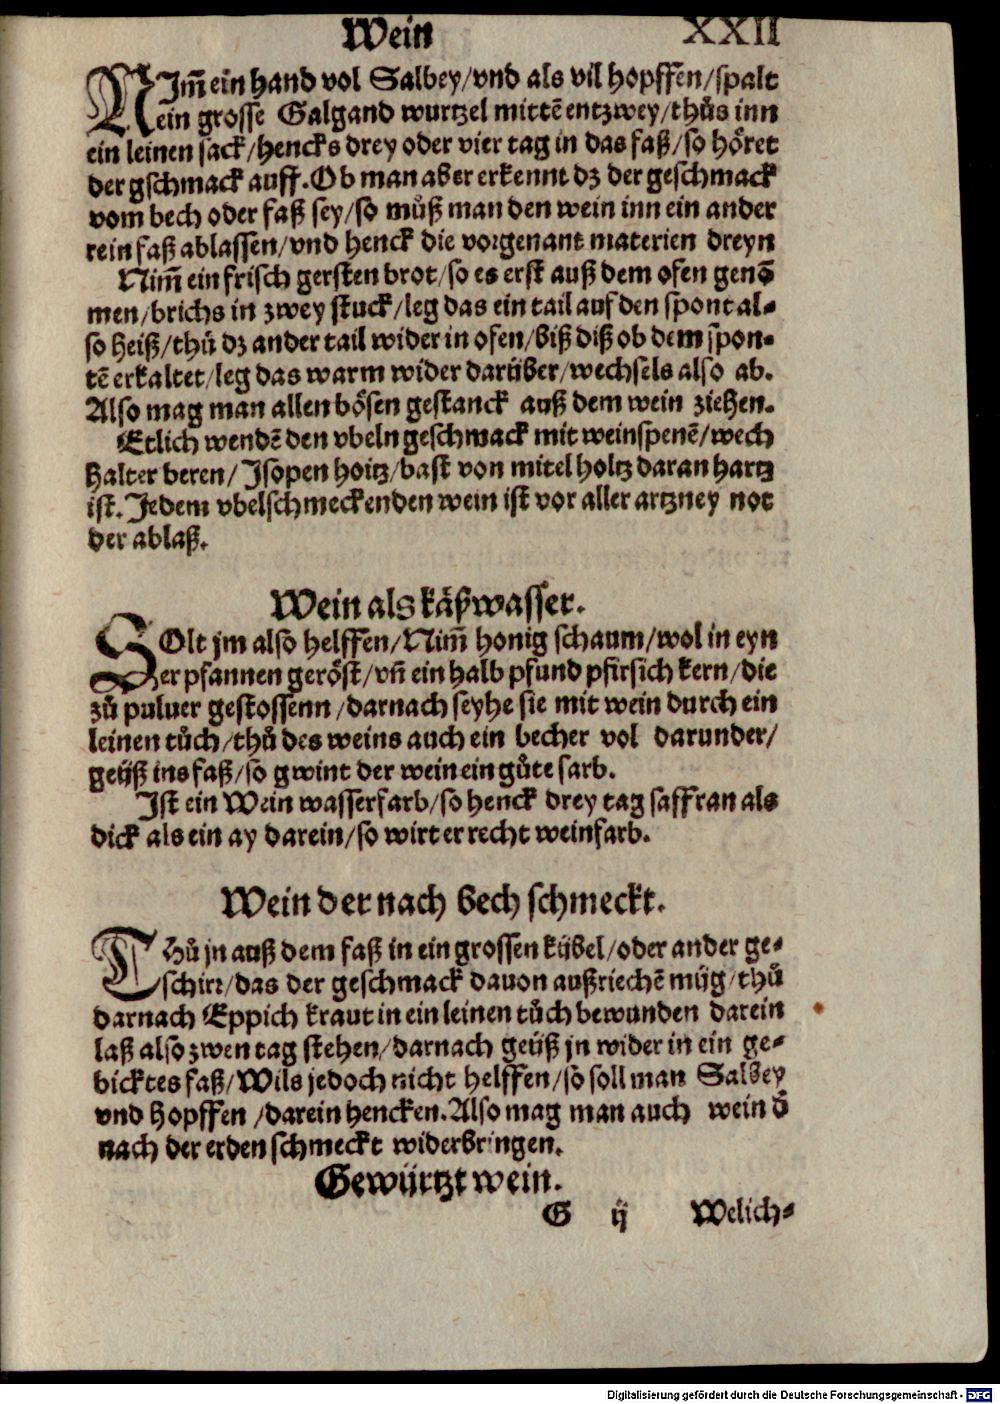 Wein XXII
NImm̃ ein hand vol Salbey/vnd als vil hopffen/spalt
ein grosse Galgand wurtzel mittẽ entzwey/thůs inn
ein leinen sack/hencks drey oder vier tag in das faß/so höret
der gschmack auff. Ob man aber erkennt dz der geschmack
vom bech oder faß sey/so můß man den wein inn ein ander
rein faß ablassen/vnd henck die vorgenant materien dreyn
Nim̃ ein frisch gersten brot/so es erst auß dem ofen genõ
men/brichs in zwey stuck/leg das ein tail auf den spont al⸗
so heiß/thů dz ander tail wider in ofen/biß diß ob dem spon⸗
tẽ erkaltet/leg das warm wider darüber/wechsels also ab.
Also mag man allen bösen gestanck auß dem wein ziehen.
Etlich wendẽ den vbeln geschmack mit weinspenẽ/wech
halter beren/Jsopen hoitz/bast von mitel holtz daran hartz
ist. Jedem vbelschmeckenden wein ist vor aller artzney not
der ablaß.
Wein als käßwasser.
SOlt jm also helffen/Nim̃ honig schaum/wol in eyn
er pfannen geröst/vñ ein halb pfund pfirsich kern/die
zů puluer gestossenn/darnach seyhe sie mit wein durch ein
leinen tůch/thů des weins auch ein becher vol darunder/
geüß ins faß/so gwint der wein ein gůte farb.
Jst ein Wein wasserfarb/so henck drey tag saffran als
dick als ein ay darein/so wirt er recht weinfarb.
Wein der nach bech schmeckt.
THů jn auß dem faß in ein grossen kübel/oder ander ge⸗
schirr/das der geschmack dauon außriechẽ müg/thů
darnach Eppich kraut in ein leinen tůch bewunden darein
laß also zwen tag stehen/darnach geüß jn wider in ein ge⸗
bicktes faß/Wils jedoch nicht helffen/so soll man Salbey
vnd Hopffen/darein hencken. Also mag man auch wein ð
nach der erden schmeckt widerbringen.
Gewürtzt wein.
G ij Welich⸗
Digitalisierung gefördert durch die Deutsche Forschungsgemeinschaft - DFG